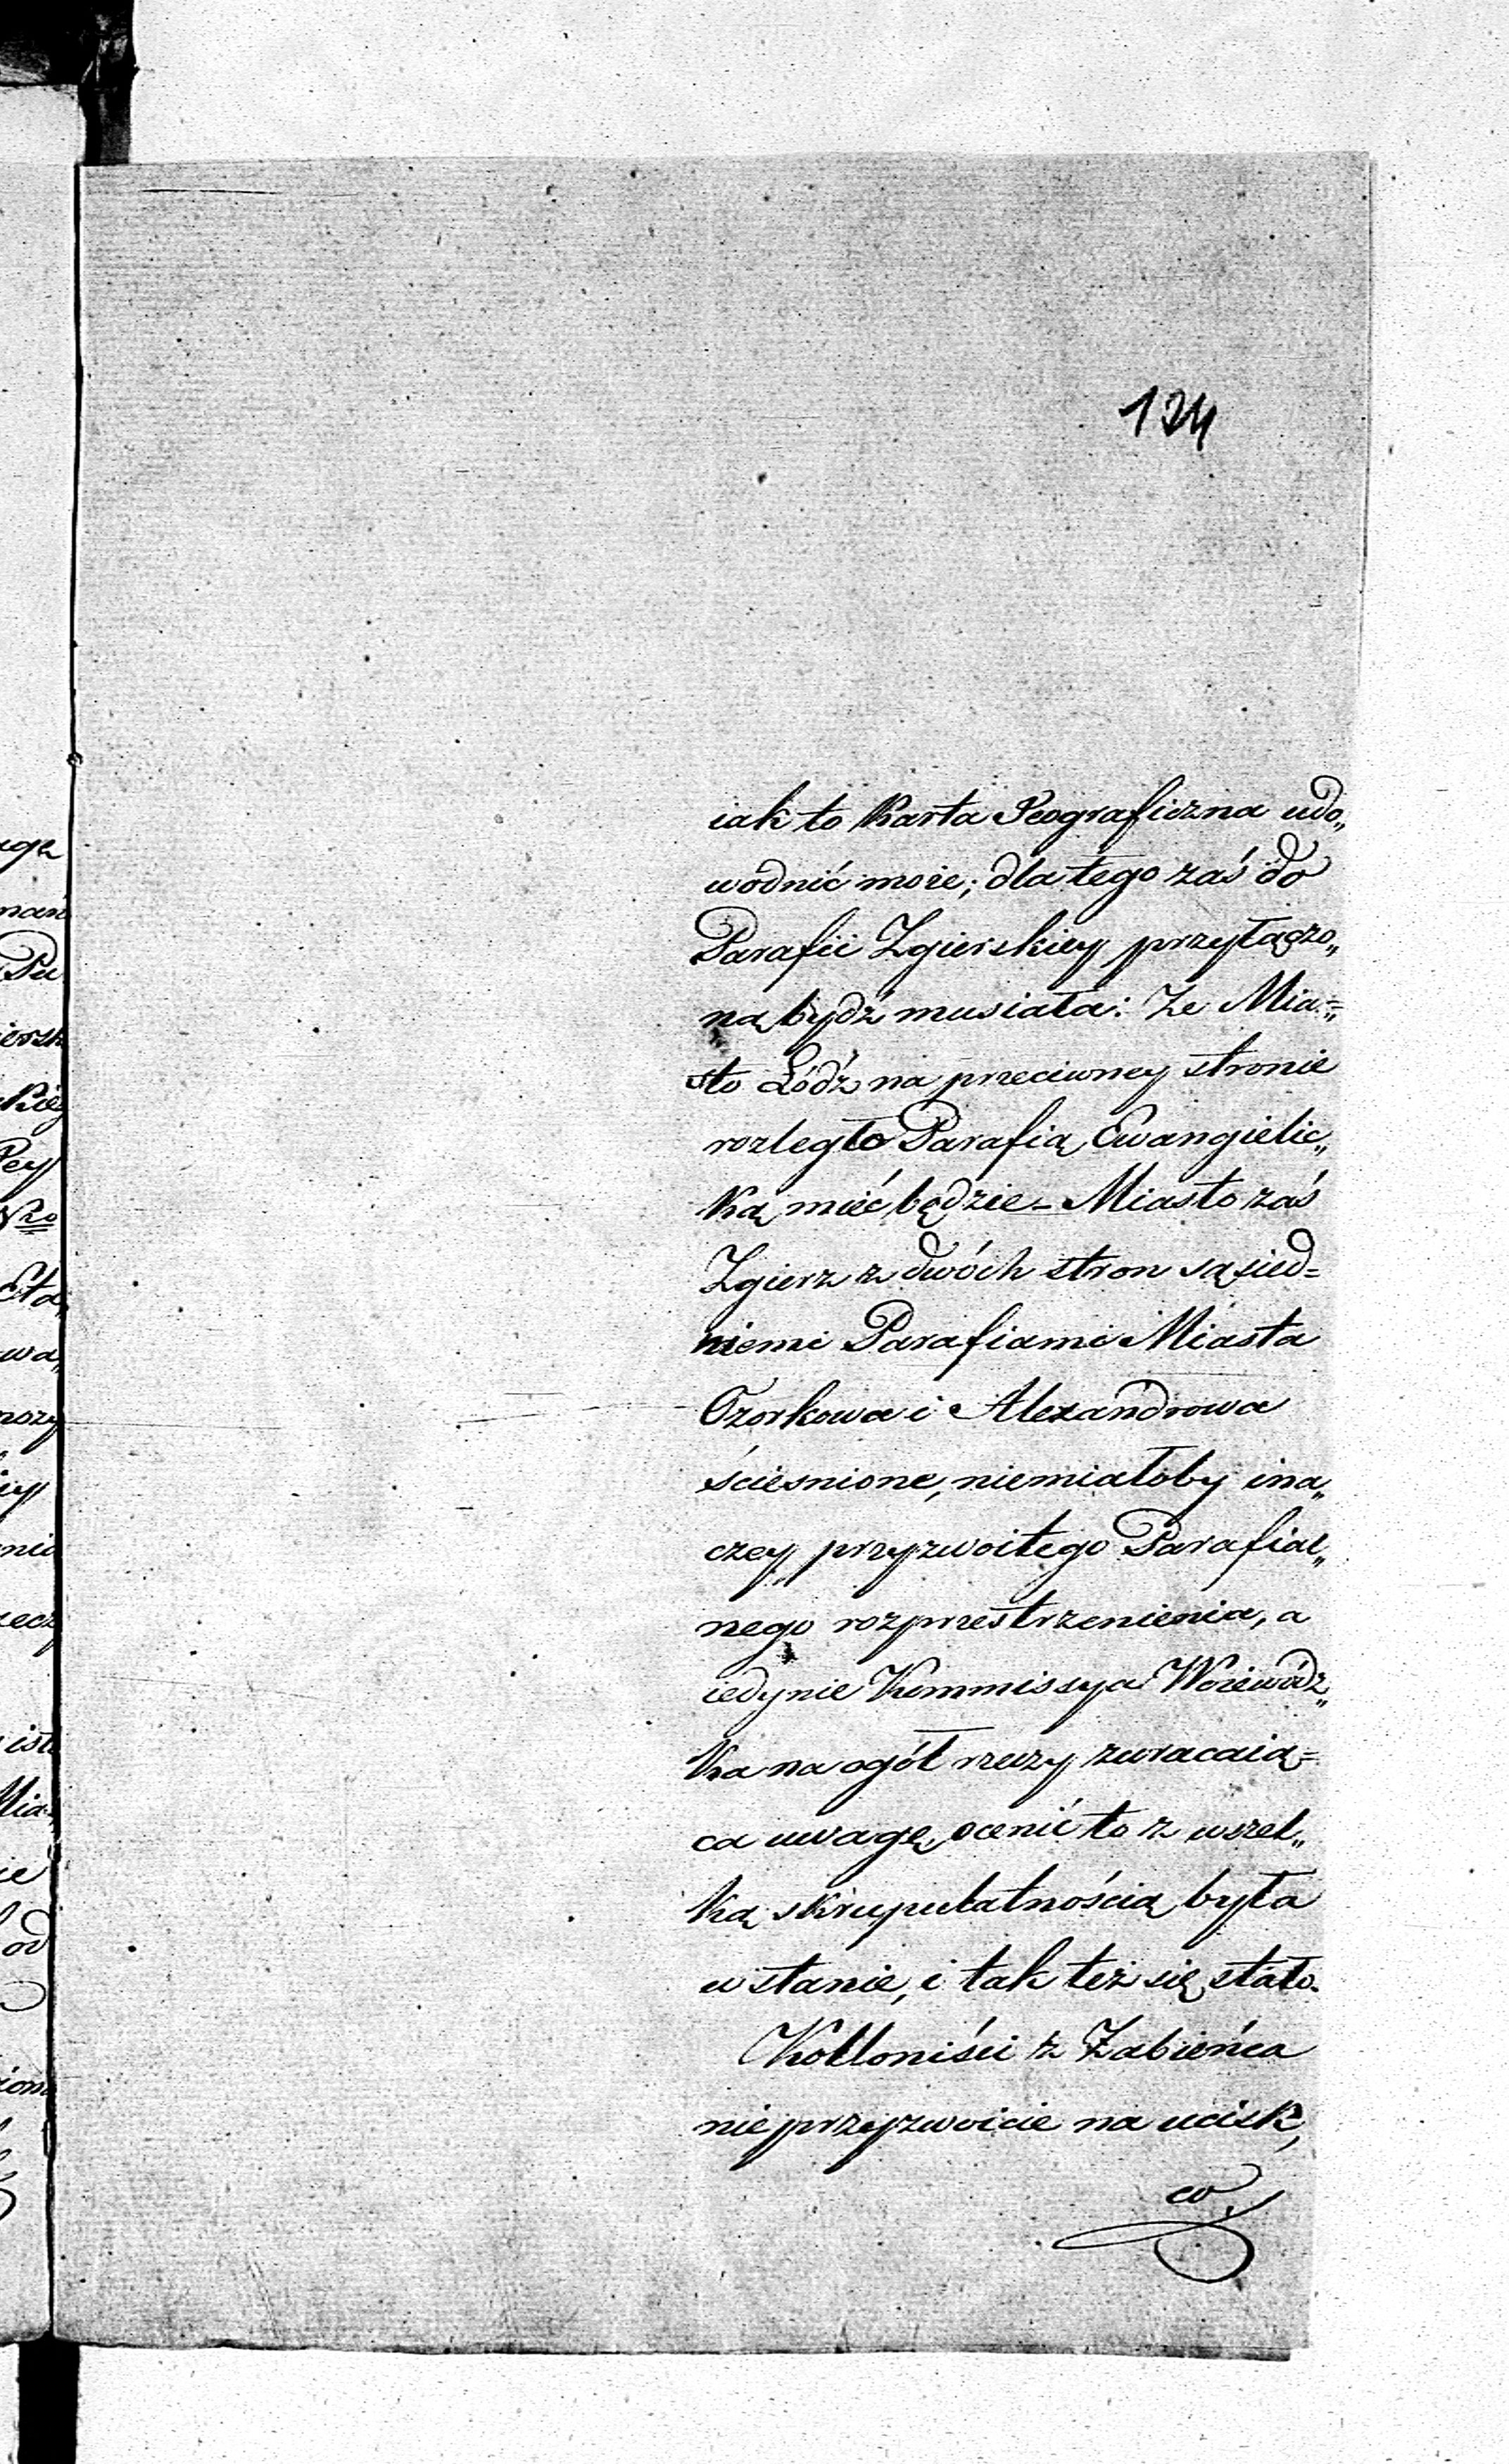 134
iak to Karta Geograficzna udo„
wodnić może; dla tego zaś do
Parafii Zgierskiey przyłączo„
ną bydź musiała: Że Mia=
sto Łódź na przeciwney stronie
rozległo Parafią Ewangielic„
ką mieć będzie – Miasto zaś
Zgierz z dwóch stron sąsied=
niemi Parafiami Miasta
Ozorkowa i Alexandrowa
ścieśnione, niemiałoby ina„
czey przyzwoitego Parafial„
nego rozprzestrzenienia, a
iedynie Kommissya Woiewódz„
ka na ogół rzeczy zwracaią=
ca uwagę, ocenić to z wszel„
ką skrupulatnością była
w stanie, i tak też się stało.
Kolloniści z Żabieńca
nieprzyzwoicie na ucisk,
co